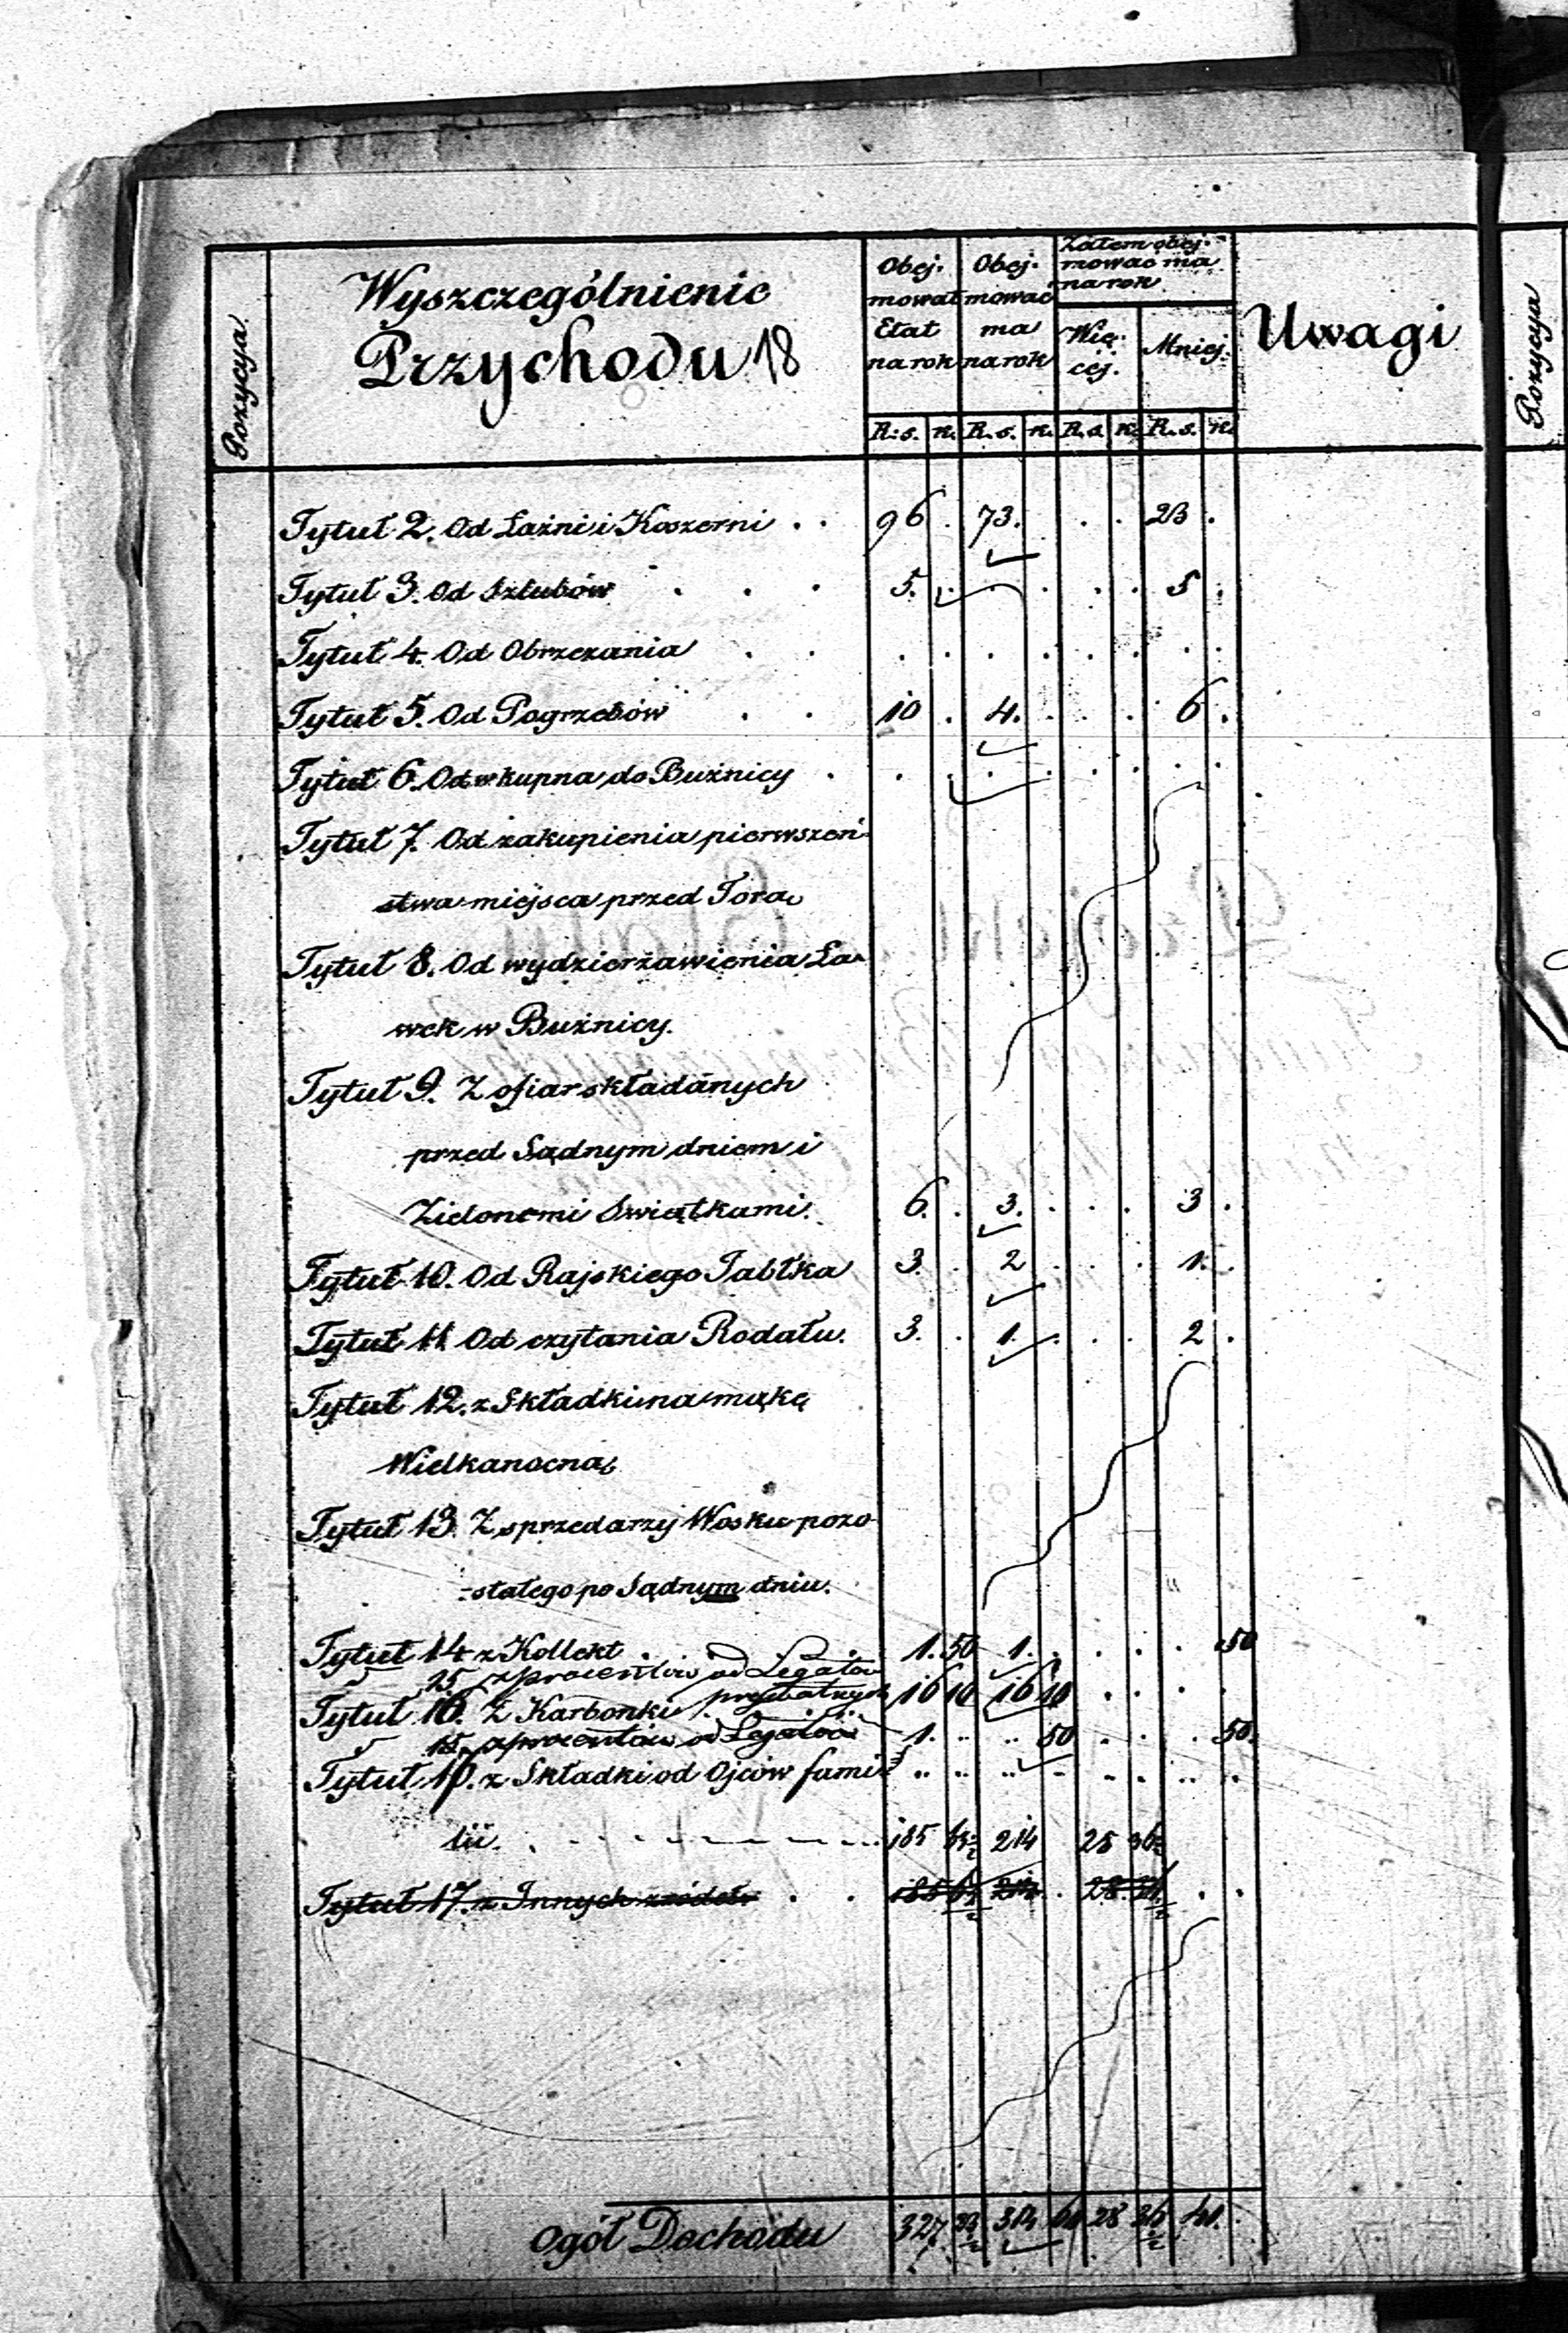 Pozycya.
Wyszczególnienie
Przychodu 18
Obej-
mował
Etat
na rok
Obej-
mować
ma
na rok
Zatem obej-
mować ma
na rok
Wię-
cej.
Mniej.
Uwagi
R: s. k. R. s. k. R. s. k. R. s. k.
Pozycya
Tytuł 2. Od Łaźni i Koszerni . . 96 . 73. . . 23 .
Tytuł 3. Od Szlubów . . . 5. . . . . 5 .
Tytuł 4. Od Obrzezania . . . . . . . . . .
Tytuł 5. Od Pogrzebów . . 10 . 4. . . . 6 .
Tytuł 6. Od wkupna do Buźnicy . . . . . . . . .
Tytuł 7. Od zakupienia pierwszeń-
stwa miejsca przed Torą
Tytuł 8. Od wydzierżawienia Ła-
wek w Buźnicy.
Tytuł 9. Z ofiar składanych
przed Sądnym dniem i
Zielonemi Świątkami. 6. . 3. . . . 3 .
Tytuł 10. Od Rajskiego Jabłka 3. . 2 . . . 1. .
Tytuł 11. Od czytania Rodału. 3. . 1. . . . 2 .
Tytuł 12. z Składki na mąkę
Wielkanocną
Tytuł 13. Z sprzedarzy Wosku pozo-
-stałego po Sądnym dniu.
Tytuł 14 z Kollekt . 1. 50 1. . . . . 50
15. z procentów od Legatów
prywatnych 16 10 16 10 . . . .
Tytuł 16. Z Karbonki 1. .. .. 50 . . . 50.
15. z procentów od Legatów
Tytuł 17. z Składki od Ojców fami-
lii. 185 214 28 36½
Tytuł 17. z Innych źródeł . . 185 214 . 28. . .
Ogół Dochodu 327. 314 60 28 36½ 41. .